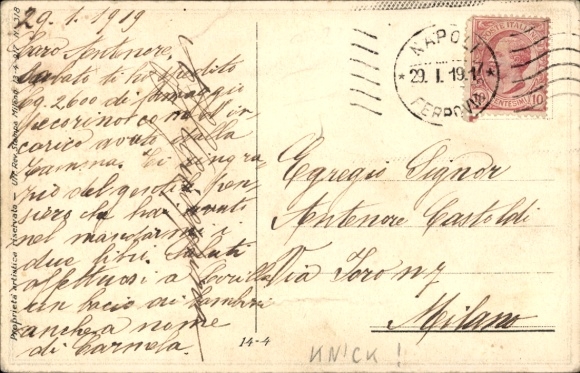 29.1.1919
Caro Antenore,
Sabato ti ho spedito
Kg. 2600 di formaggio
pecorino con l'in
carico avuto dalla
mamma. Ti ringra
zio del gentil pen
siero che hai avuto
nel mandarmi i
due libri. Saluti
affettuosi a
un bacio ai bambini
anche a nome
di Carmela.
14-4
Proprietà artistica riservata
NAPOLI
29. I. 19.17
FERROVIA
POSTE ITALIANE
CENTESIMI 10
Egregio Signor
Antenore Castoldi
Via
Milano
KN'CK!